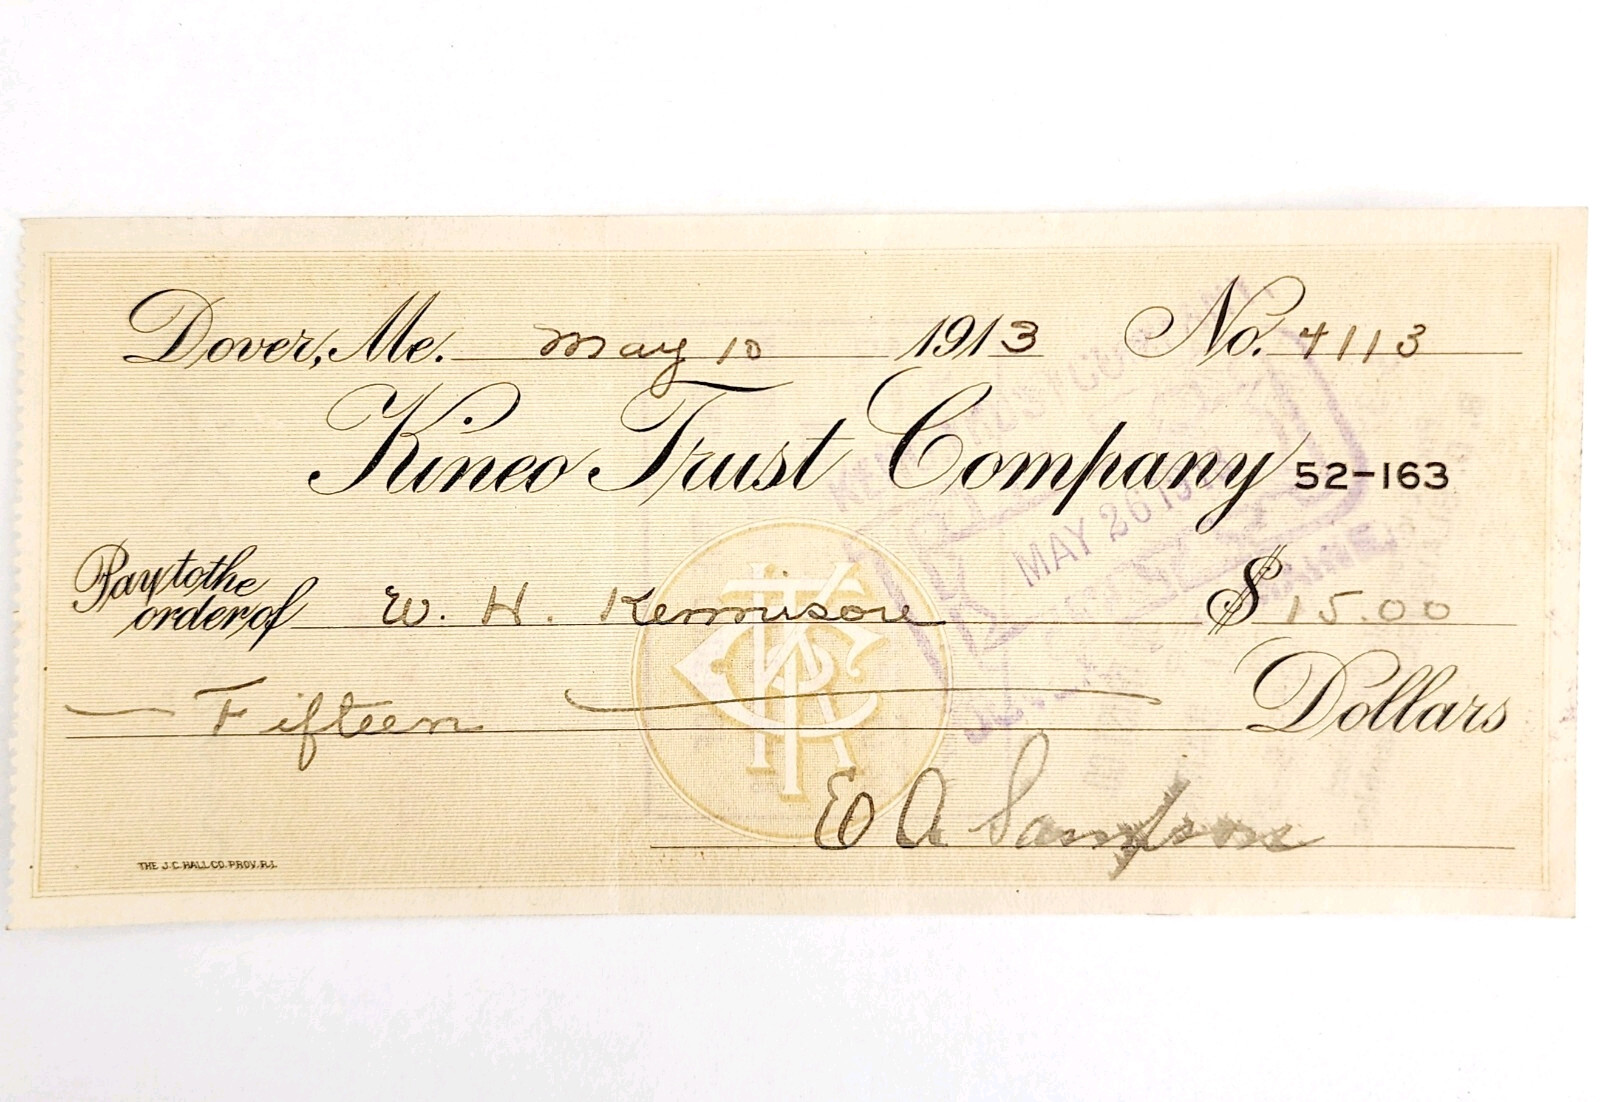 Dover, Me. May 10 1913 No. 4113
Kineo Trust Company 52-163
Pay to the
order of W. H. Kennisone $ 15.00
Fifteen Dollars
E A Sampson
MAY 26 19
THE J.C. HALL CO. PROV. R.I.